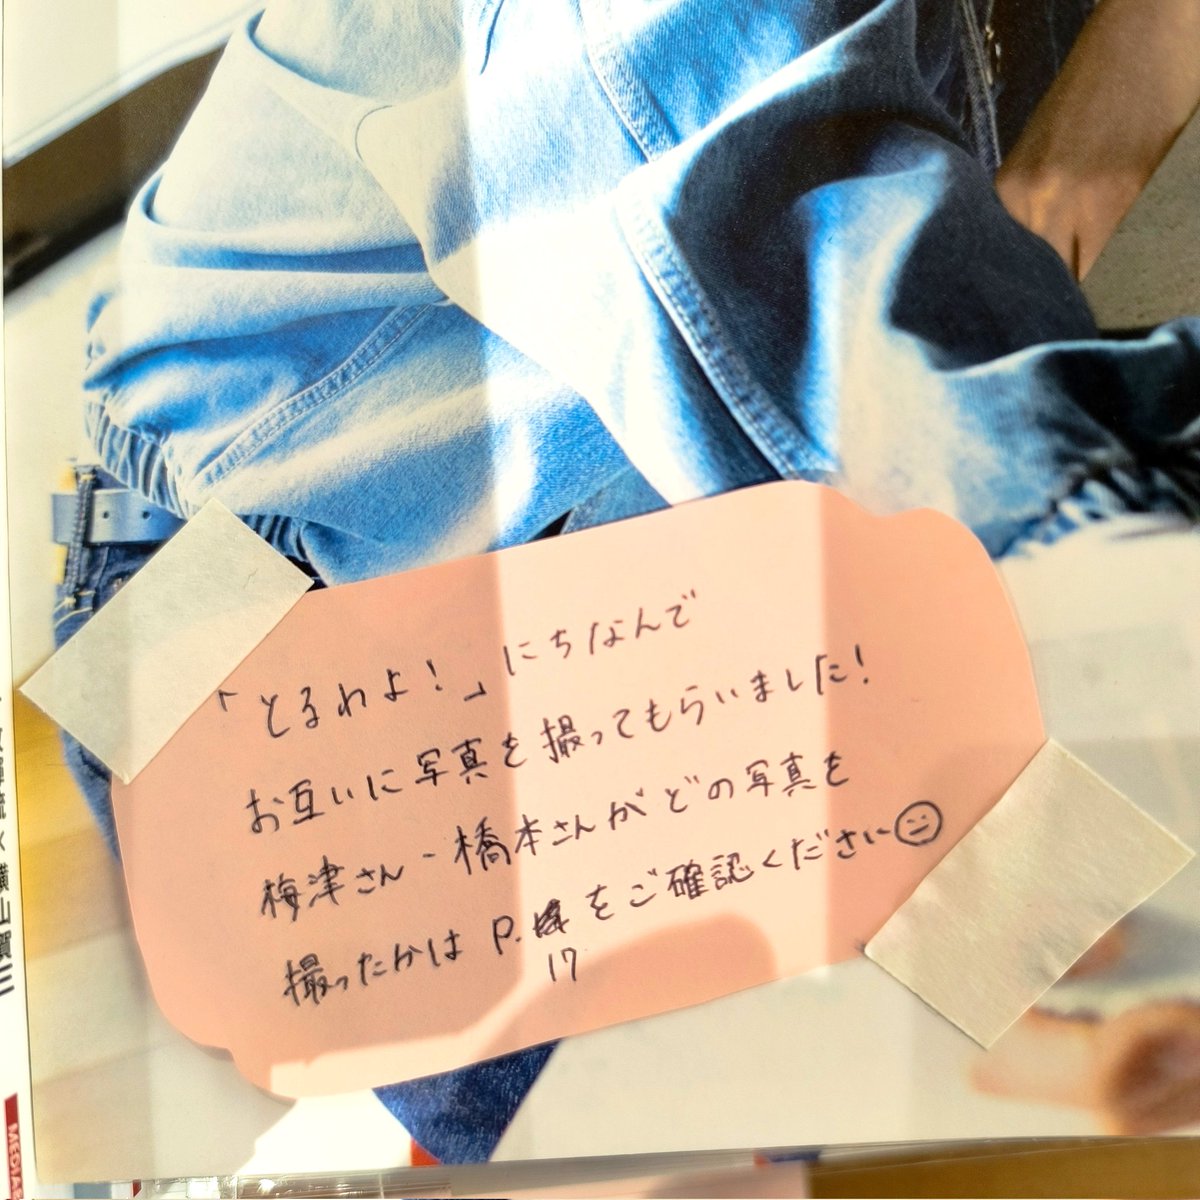 「とるわよ！」にちなんで
お互いに写真を撮ってもらいました！
梅津さん-橋本さんがどの写真を
撮ったかは P. をご確認ください
17
横山賀三
MEDIA